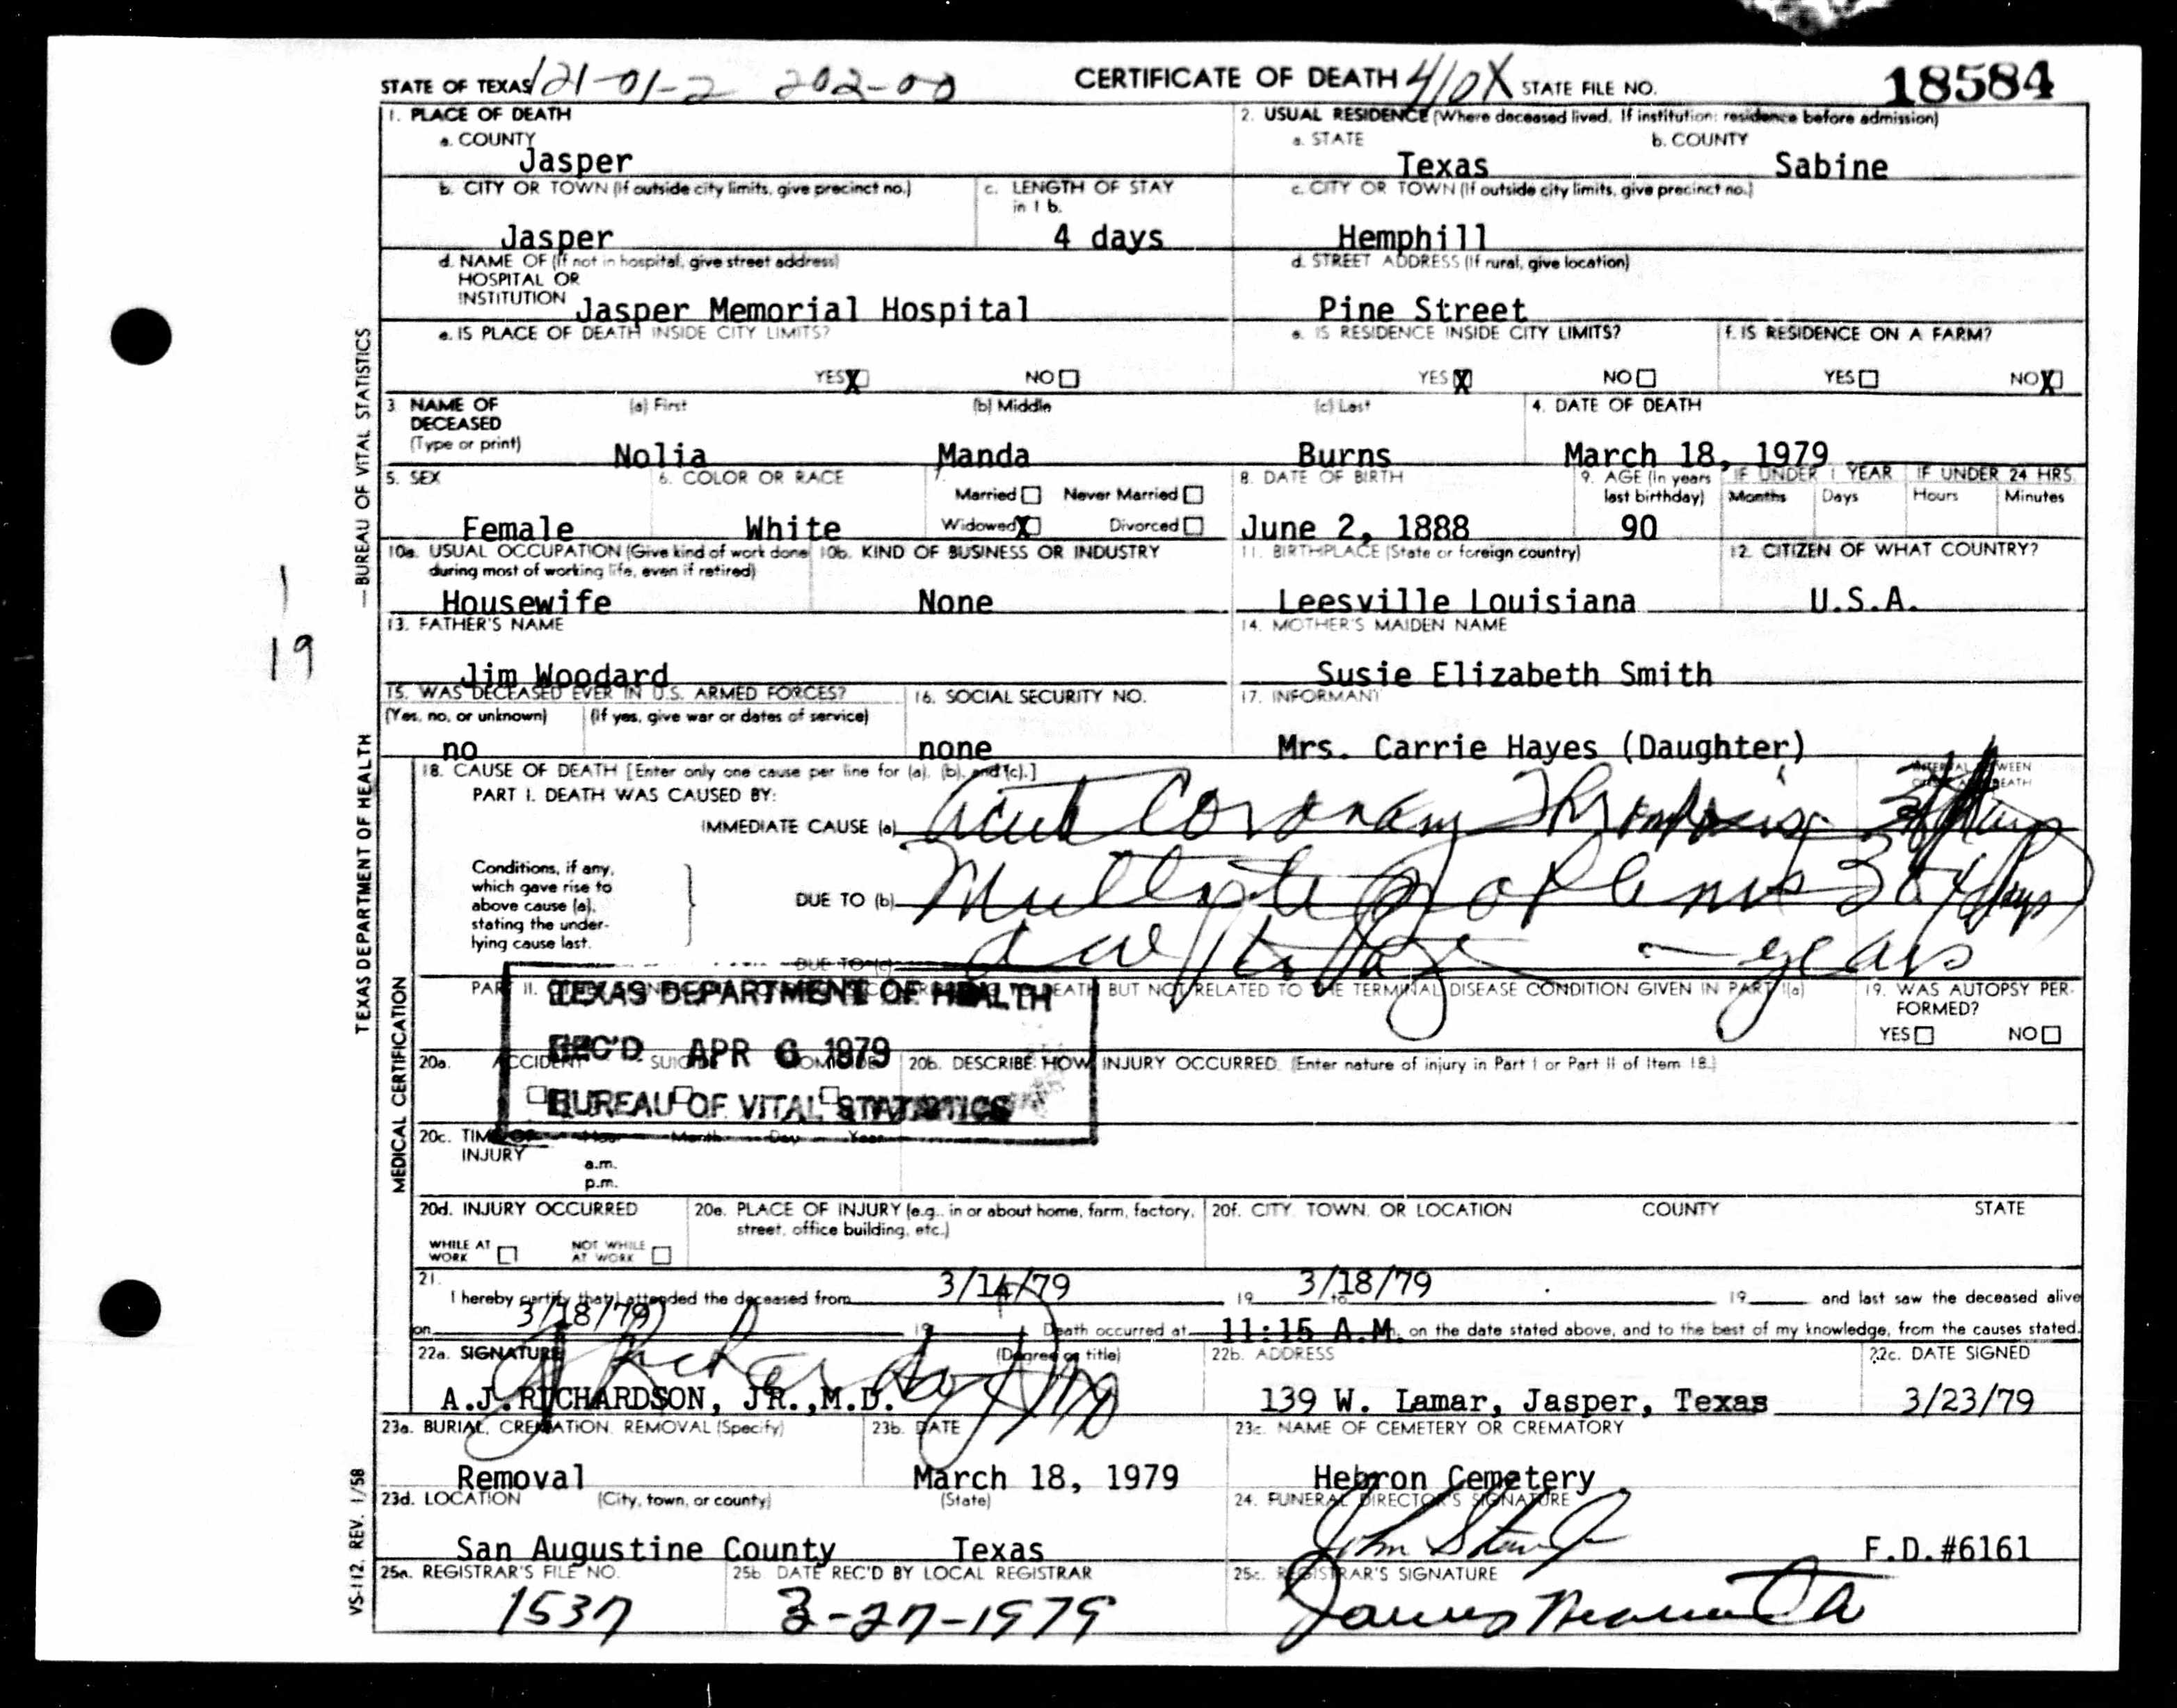 STATE OF TEXAS 121-01-2 202-00 CERTIFICATE OF DEATH 410X STATE FILE NO. 18584
1. PLACE OF DEATH
a. COUNTY
Jasper
2. USUAL RESIDENCE (Where deceased lived. If institution: residence before admission)
a. STATE b. COUNTY
Texas Sabine
b. CITY OR TOWN (If outside city limits, give precinct no.)
Jasper
c. LENGTH OF STAY
in 1 b.
4 days
c. CITY OR TOWN (If outside city limits, give precinct no.)
Hemphill
d. NAME OF (If not in hospital, give street address)
HOSPITAL OR
INSTITUTION Jasper Memorial Hospital
d. STREET ADDRESS (If rural, give location)
Pine Street
e. IS PLACE OF DEATH INSIDE CITY LIMITS?
YES X NO
e. IS RESIDENCE INSIDE CITY LIMITS?
YES X NO
f. IS RESIDENCE ON A FARM?
YES NO X
3. NAME OF
DECEASED
(Type or print)
(a) First (b) Middle (c) Last
Nolia Manda Burns
4. DATE OF DEATH
March 18, 1979
5. SEX
Female
6. COLOR OR RACE
White
7.
Married Never Married
Widowed X Divorced
8. DATE OF BIRTH
June 2, 1888
9. AGE (In years
last birthday)
90
IF UNDER 1 YEAR IF UNDER 24 HRS.
Months Days Hours Minutes
10a. USUAL OCCUPATION (Give kind of work done
during most of working life, even if retired)
Housewife
10b. KIND OF BUSINESS OR INDUSTRY
None
11. BIRTHPLACE (State or foreign country)
Leesville Louisiana
12. CITIZEN OF WHAT COUNTRY?
U.S.A.
13. FATHER'S NAME
Jim Woodard
14. MOTHER'S MAIDEN NAME
Susie Elizabeth Smith
15. WAS DECEASED EVER IN U.S. ARMED FORCES?
(Yes, no, or unknown) (If yes, give war or dates of service)
no
16. SOCIAL SECURITY NO.
none
17. INFORMANT
Mrs. Carrie Hayes (Daughter)
18. CAUSE OF DEATH [Enter only one cause per line for (a), (b), and (c).]
PART I. DEATH WAS CAUSED BY:
IMMEDIATE CAUSE (a) Acute Coronary Thrombosis
Conditions, if any,
which gave rise to
above cause (a),
stating the under-
lying cause last.
DUE TO (b) Multiple
DUE TO (c) years
PART II. DEATH BUT NOT RELATED TO THE TERMINAL DISEASE CONDITION GIVEN IN PART I(a)
19. WAS AUTOPSY PER-
FORMED?
YES NO
TEXAS DEPARTMENT OF HEALTH
REC'D APR 6 1979
BUREAU OF VITAL STATISTICS
20a. ACCIDENT SUICIDE HOMICIDE
20b. DESCRIBE HOW INJURY OCCURRED. (Enter nature of injury in Part I or Part II of Item 18.)
20c. TIME OF
INJURY
Hour Month Day Year
a.m.
p.m.
20d. INJURY OCCURRED
WHILE AT
WORK
NOT WHILE
AT WORK
20e. PLACE OF INJURY (e.g., in or about home, farm, factory,
street, office building, etc.)
20f. CITY, TOWN, OR LOCATION COUNTY STATE
21.
I hereby certify that I attended the deceased from 3/14/79 19 to 3/18/79 19 and last saw the deceased alive
on 3/18/79 19 Death occurred at 11:15 A.M. on the date stated above, and to the best of my knowledge, from the causes stated.
22a. SIGNATURE (Degree or title)
A.J.RICHARDSON, JR.,M.D.
22b. ADDRESS
139 W. Lamar, Jasper, Texas
22c. DATE SIGNED
3/23/79
23a. BURIAL, CREMATION, REMOVAL (Specify)
Removal
23b. DATE
March 18, 1979
23c. NAME OF CEMETERY OR CREMATORY
Hebron Cemetery
23d. LOCATION (City, town, or county) (State)
San Augustine County Texas
24. FUNERAL DIRECTOR'S SIGNATURE
F.D.#6161
25a. REGISTRAR'S FILE NO.
1537
25b. DATE REC'D BY LOCAL REGISTRAR
3-27-1979
25c. REGISTRAR'S SIGNATURE
TEXAS DEPARTMENT OF HEALTH — BUREAU OF VITAL STATISTICS
MEDICAL CERTIFICATION
VS-112, REV. 1/58
1
19